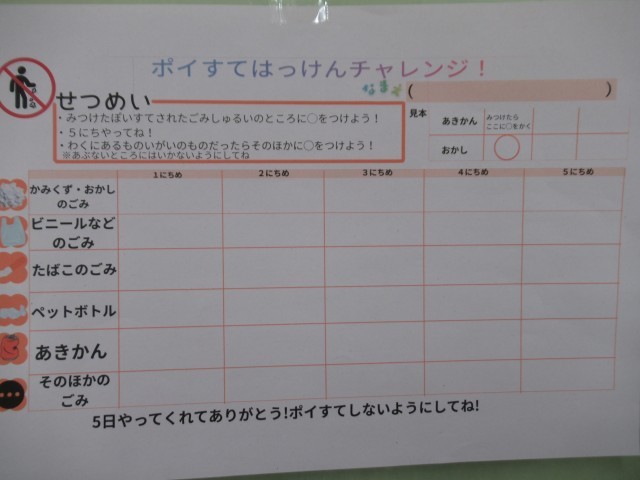 ポイすてはっけんチャレンジ！
なまえ（　　　）
せつめい
・みつけたぽいすてされたごみしゅるいのところに○をつけよう！
・５にちやってね！
・わくにあるものいがいのものだったらそのほかに○をつけよう！
※あぶないところにはいかないようにしてね
見本
あきかん みつけたら
ここに○をかく
おかし ○
1にちめ 2にちめ 3にちめ 4にちめ 5にちめ
かみくず・おかし
のごみ
ビニールなど
のごみ
たばこのごみ
ペットボトル
あきかん
そのほかの
ごみ
5日やってくれてありがとう!ポイすてしないようにしてね!